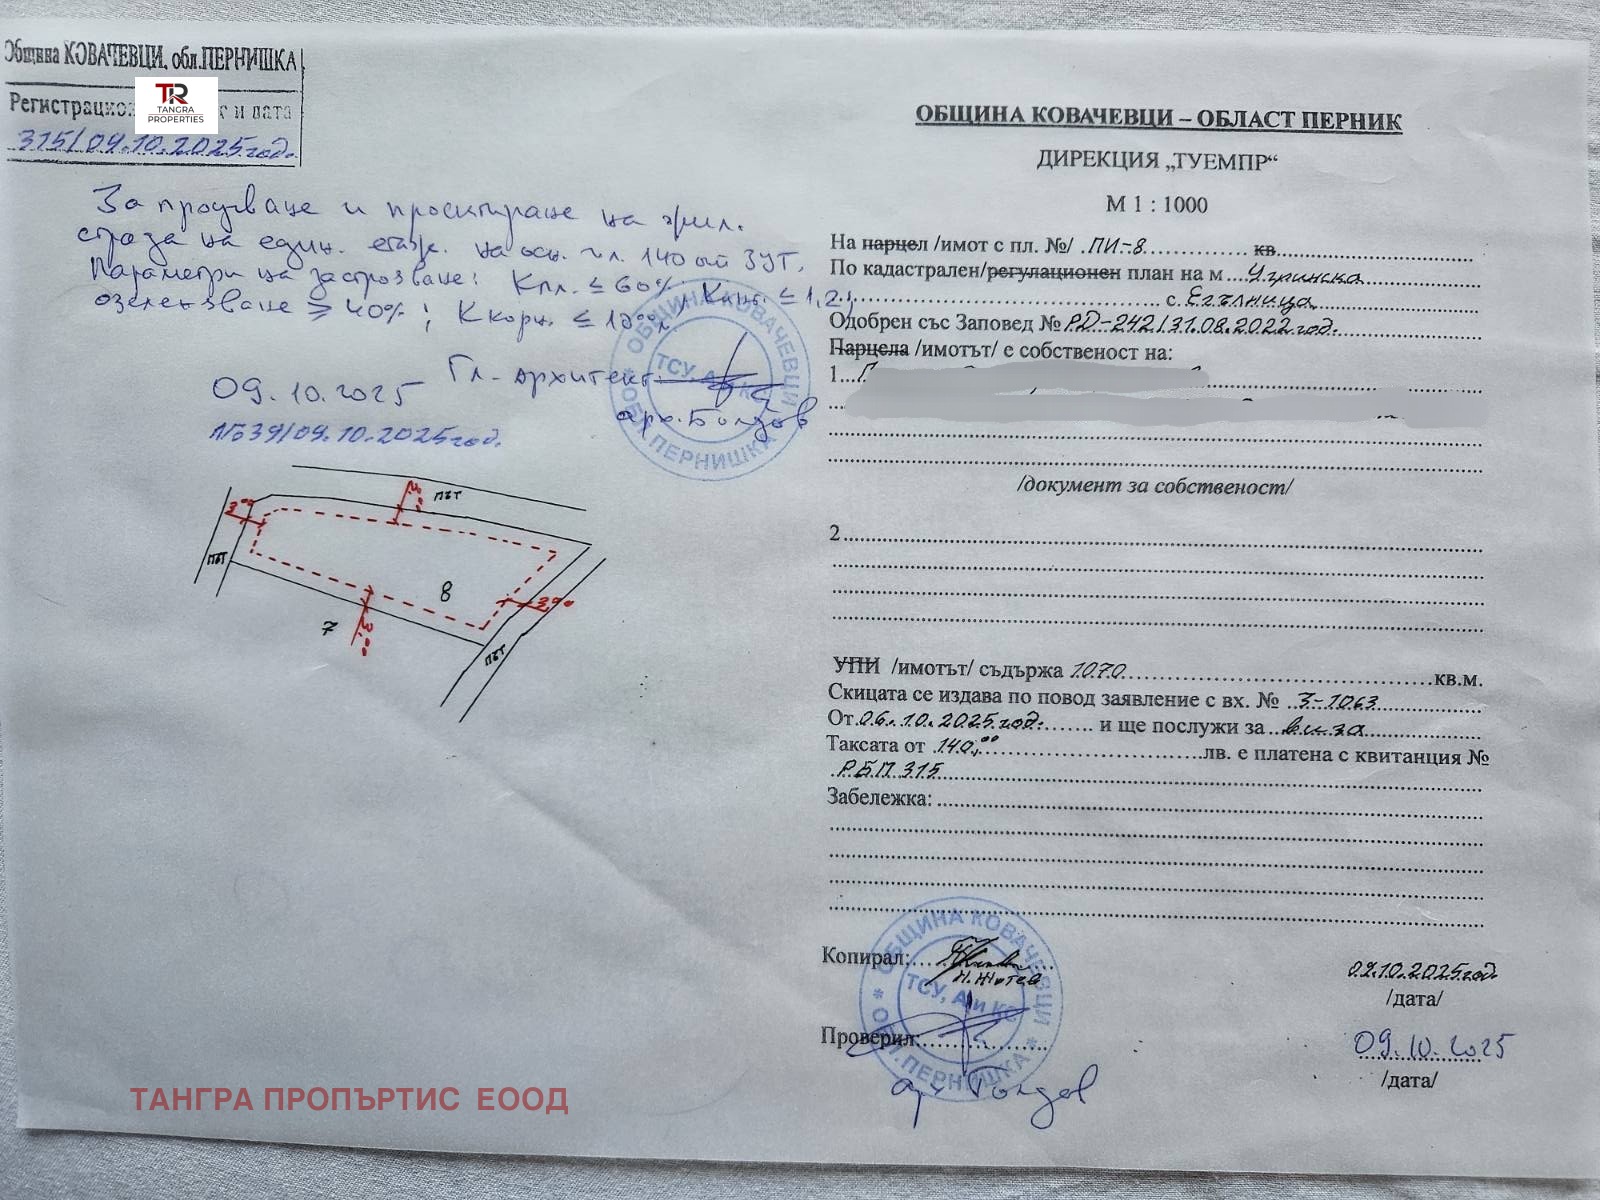 Община КОВАЧЕВЦИ, обл.ПЕРНИШКА
Регистрацио
т и дата
315/09.10.2025год.
TR
TANGRA
PROPERTIES
За проучване и проектиране на жил.
сграда на един. етаж. на осн. чл. 140 от ЗУТ.
Параметри на застрояване: Кпл. ≤ 60% Кинт. ≤ 1,2;
озеленяване ≥ 40%; Ккорн. ≤ 10
Гл. архитект:
09.10.2025
арх. Болдов
№39/09.10.2025год.
ОБЩИНА КОВАЧЕВЦИ
ТСУ, А и КС
ОБЛ. ПЕРНИШКА
3,00
път
път
8
3,00
7
3,00
път
ОБЩИНА КОВАЧЕВЦИ – ОБЛАСТ ПЕРНИК
ДИРЕКЦИЯ „ТУЕМПР“
М 1 : 1000
На парцел /имот с пл. №/ ПИ-8 кв
По кадастрален/регулационен план на м Угринска
с. Егълница
Одобрен със Заповед № РД-242/31.08.2022год.
Парцела /имотът/ е собственост на:
1
/документ за собственост/
2
УПИ /имотът/ съдържа 1070 кв.м.
Скицата се издава по повод заявление с вх. № З-1063
От 06.10.2025год. и ще послужи за виза
Таксата от 140,00 лв. е платена с квитанция №
РБП 315
Забележка:
Копирал:
09.10.2025год
/дата/
Проверил:
09.10.2025
/дата/
арх Болдов
ОБЩИНА КОВАЧЕВЦИ
ТСУ, А и КС
ОБЛ. ПЕРНИШКА
ТАНГРА ПРОПЪРТИС ЕООД